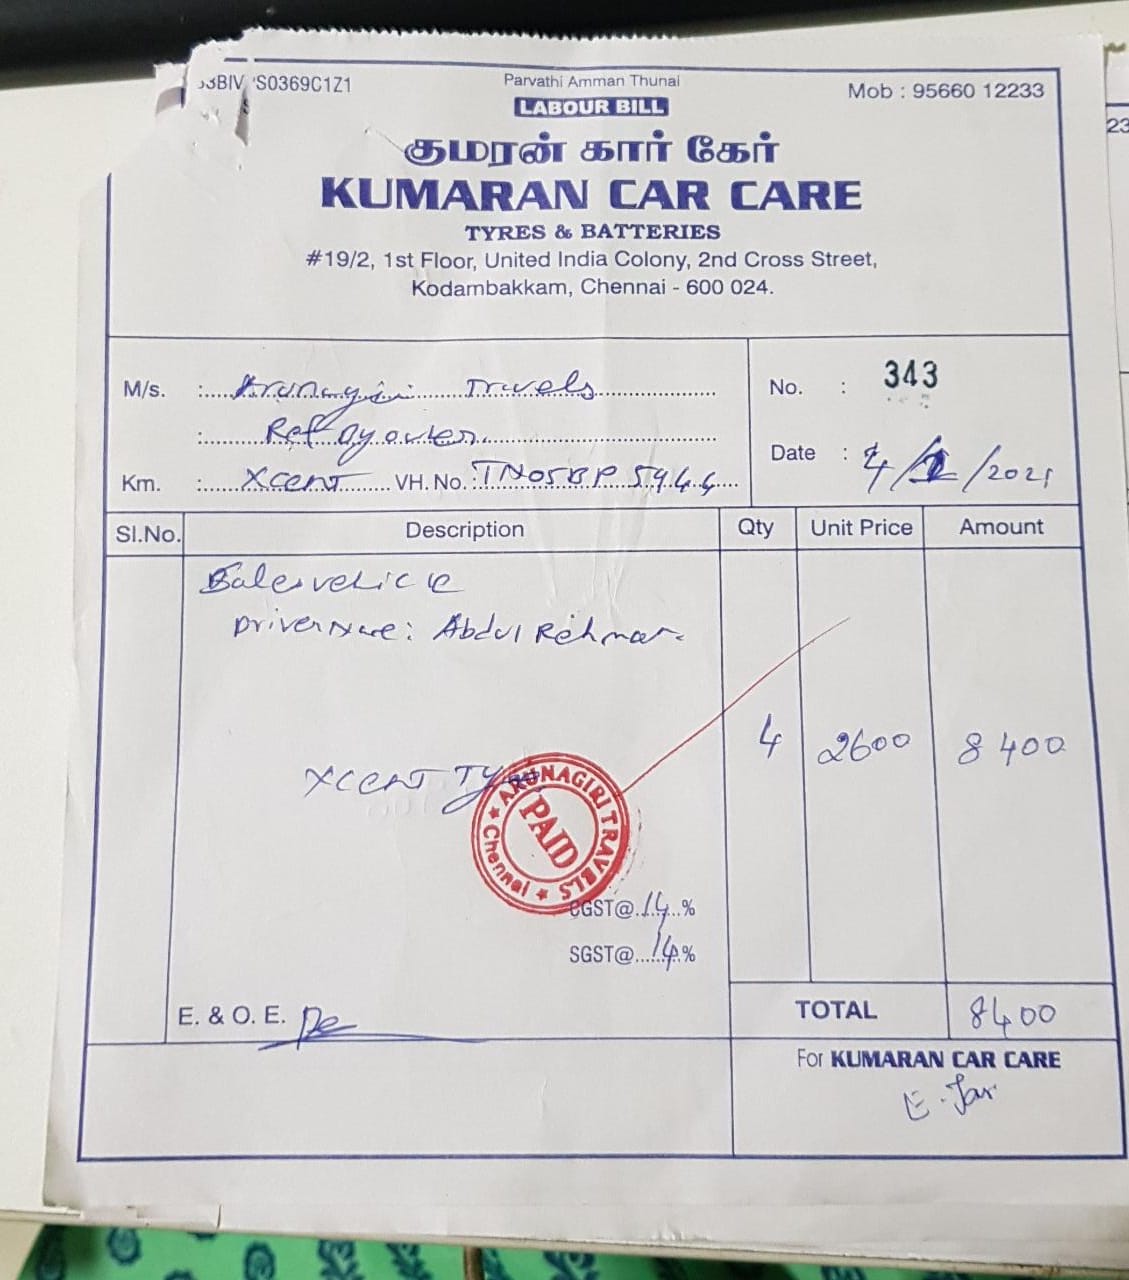 S0369C1Z1
Parvathi Amman Thunai
Mob : 95660 12233
LABOUR BILL
குமரன் கார் கேர்
KUMARAN CAR CARE
TYRES & BATTERIES
#19/2, 1st Floor, United India Colony, 2nd Cross Street,
Kodambakkam, Chennai - 600 024.
M/s. : Arunagiri Travels
No. : 343
: Ref
Date : 4/ /2021
Km. : Xcent VH. No. : TN05BP5944
Sl.No. Description Qty Unit Price Amount
vehicle
Driver : Abdul Rehman
Xcent 4 2600 8400
ARUNAGIRI TRAVELS
PAID
Chennai
CGST@ 14 %
SGST@ 14 %
E. & O. E.
TOTAL 8400
For KUMARAN CAR CARE